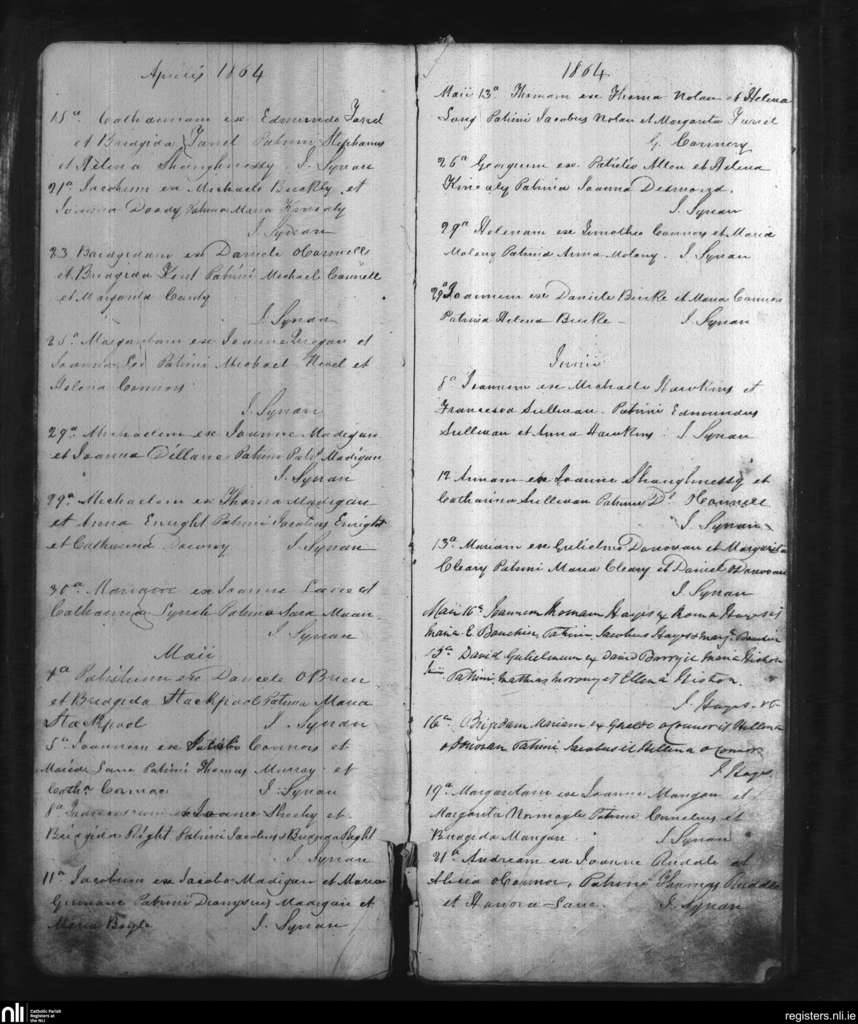 Aprilis 1864
15a. Catharinam ex Edmundo Farrel
et Bridgida Farrel Patrini Stephanus
et Helena Shaughnessy. J. Synan
21a Jacobum ex Michaele Buckly et
Joanna Doody Patrina Maria Kinealy
J. Synan
23 Bridgidam ex Daniele OConnell
et Bridgida Kent Patrini Michael Connell
et Margarita
J. Synan
Margaritam ex Joanne et
Joanna Patrini Michael et
Helena Connors
J. Synan
29a. Michaelem ex Joanne Madigan
et Joanna Dillane Patrini Patk Madigan
J. Synan
29a. Michaelem ex Thoma Madigan
et Anna Enright Patrini Jacobus Enright
et Catharina Downy J. Synan
30a. ex Joanne Lane et
Catharina Lynch Patrina Sara
J. Synan
Maii
Patritium ex Daniele OBrien
et Bridgida Stackpool Patrina Maria
Stackpool J. Synan
5a Joannem ex Connors et
Maria Lane Patrini Thomas Murray et
J. Synan
8a ex Joanne Sheehy et
Bridgida Right Patrini Jacobus & Bridgida Right
J. Synan
11a Jacobum ex Jacobo Madigan et Maria
Patrini Dionysius Madigan et
Maria Boyle J. Synan
1864
Maii 13a Thomam ex Thoma Nolan et Helena
Long Patrini Jacobus Nolan et Margarita Farrel
G. Connery
26a Georgium ex Patritio Allen et Helena
Kinealy Patrina Joanna Desmond.
J. Synan
29a Helenam ex Timotheo Connors et Maria
Molony Patrina Anna Molony. J. Synan
29a Joannem ex Daniele Burke et Maria Connors
Patrina Helena Burke - J. Synan
Junii
8a Joannem ex Michaele Hawkins et
Francesca Sullivan. Patrini Edmundus
Sullivan et Anna Hawkins. J. Synan
12 Annam ex Joanne Shaughnessy et
Catharina Sullivan Patrinus Dl OConnell
J. Synan
13a. Mariam ex Gulielmo Donovan et Margarita
Cleary Patrini Maria Cleary et Daniel Donovan
J. Synan
Maii 16a Hayes ex Hayes et
Maria Patrini Jacobus Hayes &
15a David Gulielmum ex David Barry et Maria
Patrini Mathias et Ellena
J. Hayes
16a Brigidam Mariam ex OConnor et Hellena
O Donovan Patrini Jacobus et Hellena O Connor
J. Hayes
19a Margaritam ex Joanne Mangan et
Margarita Normoyle Patrini Cornelius et
Bridgida Mangan. J. Synan
21a. Andream ex Joanne Ruddle et
Alicia OConnor, Patrini Thomas Ruddle
et Hanora Lane. J. Synan
nli
Catholic Parish
Registers at
the NLI
registers.nli.ie